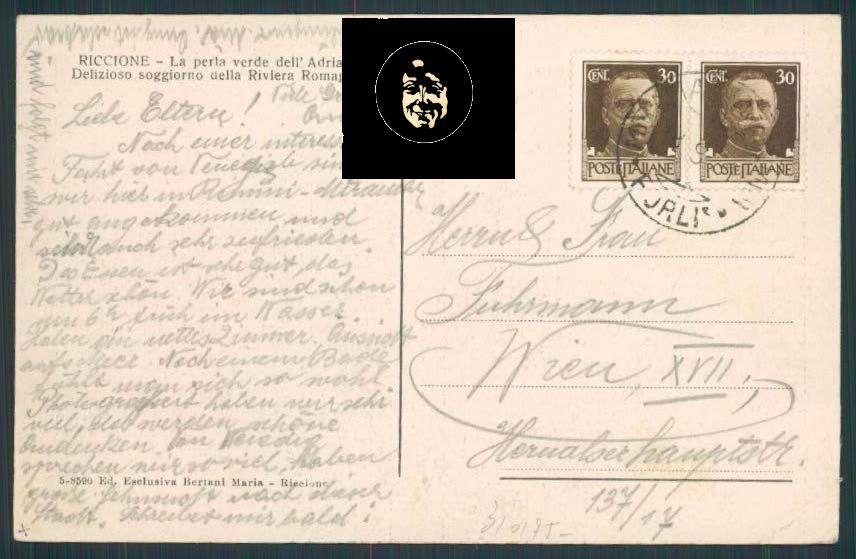 RICCIONE - La perla verde dell'Adria
Delizioso soggiorno della Riviera Romag
Liebe Eltern!
Nach einer interess
Fahrt von Venedig sin
wir hier in Rimini-Miramare
gut angekommen und
auch sehr zufrieden.
Das Essen ist sehr gut, das
Wetter schön. Wir sind schon
um 6h früh im Wasser.
Haben ein nettes Zimmer, Aussicht
aufs Meer. Nach einem Bade
fühlt man sich so wohl.
Photographiert haben wir sehr
viel, das werden schöne
Andenken. Von Venedig
sprechen wir so viel, haben
große Sehnsucht nach dieser
Stadt. Schreibet mir bald!
5-8590 Ed. Esclusiva Bertani Maria - Riccione
CENT. 30
POSTE ITALIANE
CENT. 30
POSTE ITALIANE
FORLI
Herrn & Frau
Fuhrmann
Wien, XVII,
Hernalserhauptstr.
137/17